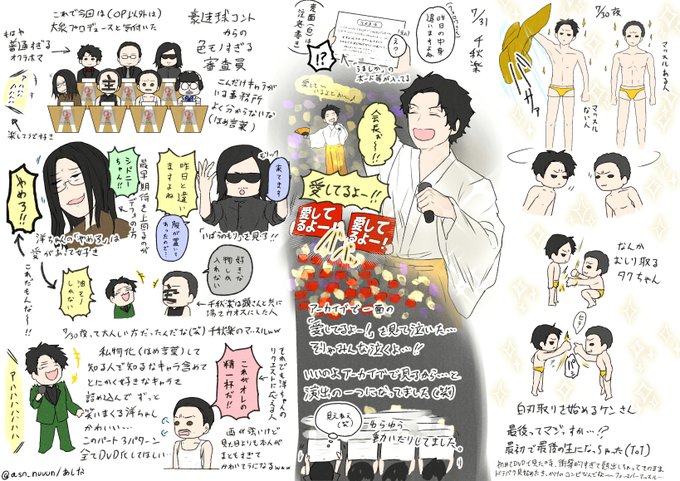 これで今回は(OP以外は)
大楽プロデュースと気付いた
もはや
普通すぎる
オクラホマ
豪速球コント
からの
色モノすぎる
審査員
こんだけキャラが
いる事務所
よく分からないな
(ほめ言葉)
楽しそうで好き
シドニー
ちゃん!!
やめろ!!
洋ちゃんの「やめろ」は
愛があって好き
これだもんな〜!!
最早期待を上回るのが
デフォの方
昨日と違い
ますよね
服が置いて
あったので…
もりっ
来てます
「いばらのもり」を見す!!
油モノ
しかない
好きな
物しか
入れない
←千秋楽は顕さんと共に
場をカオスにした人
7/30夜って大人しい方だったんだな(笑)千秋楽のマッスルww
アハハハハハハ
私物化(ほめ言葉)して
知る人ぞ知るなキャラ含めて
とにかく好きなキャラを
詰め込んで ずっと
笑いまくる洋ちゃん
かわいい…
このパート3パターン
全てDVD化してほしい
これがオレの
精一杯だ!!
それでも洋ちゃんの
リクエストに応える人
画が強いけど
見た目よりも本人が
まともすぎて
かわいそうになるwww
@asn_nuuun/あしな
表面(白)
注意書き
!?
昨日の中身
違いますよね
7/31
千秋楽
会長が〜!!
愛してるよー!!
愛して
るよー!
愛して
るよー!
アーカイブで一面の
「愛してるよー!」を見て泣いた…
そりゃみんな泣くよ…!!
いいよアーカイブで見すから…と
演出の一つになってました(笑)
見えん
(笑)
ゆらゆら
動いたりしてました。
7/30夜
マッスルある人
マッスル
ない人
なんか
むしり取る
タクちゃん
白刃取りを始めるケンさん
最後ってマジっすか…!?
最初で最後の生になっちゃった(ToT)